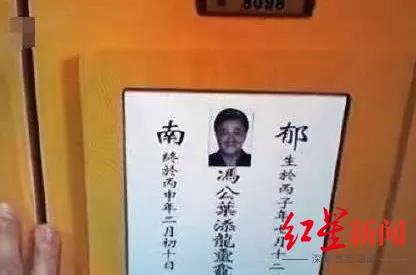 8098
郁
生於丙子年七月十二
馮公葉添龍靈
南
終於丙申年二月初十日
红星新闻